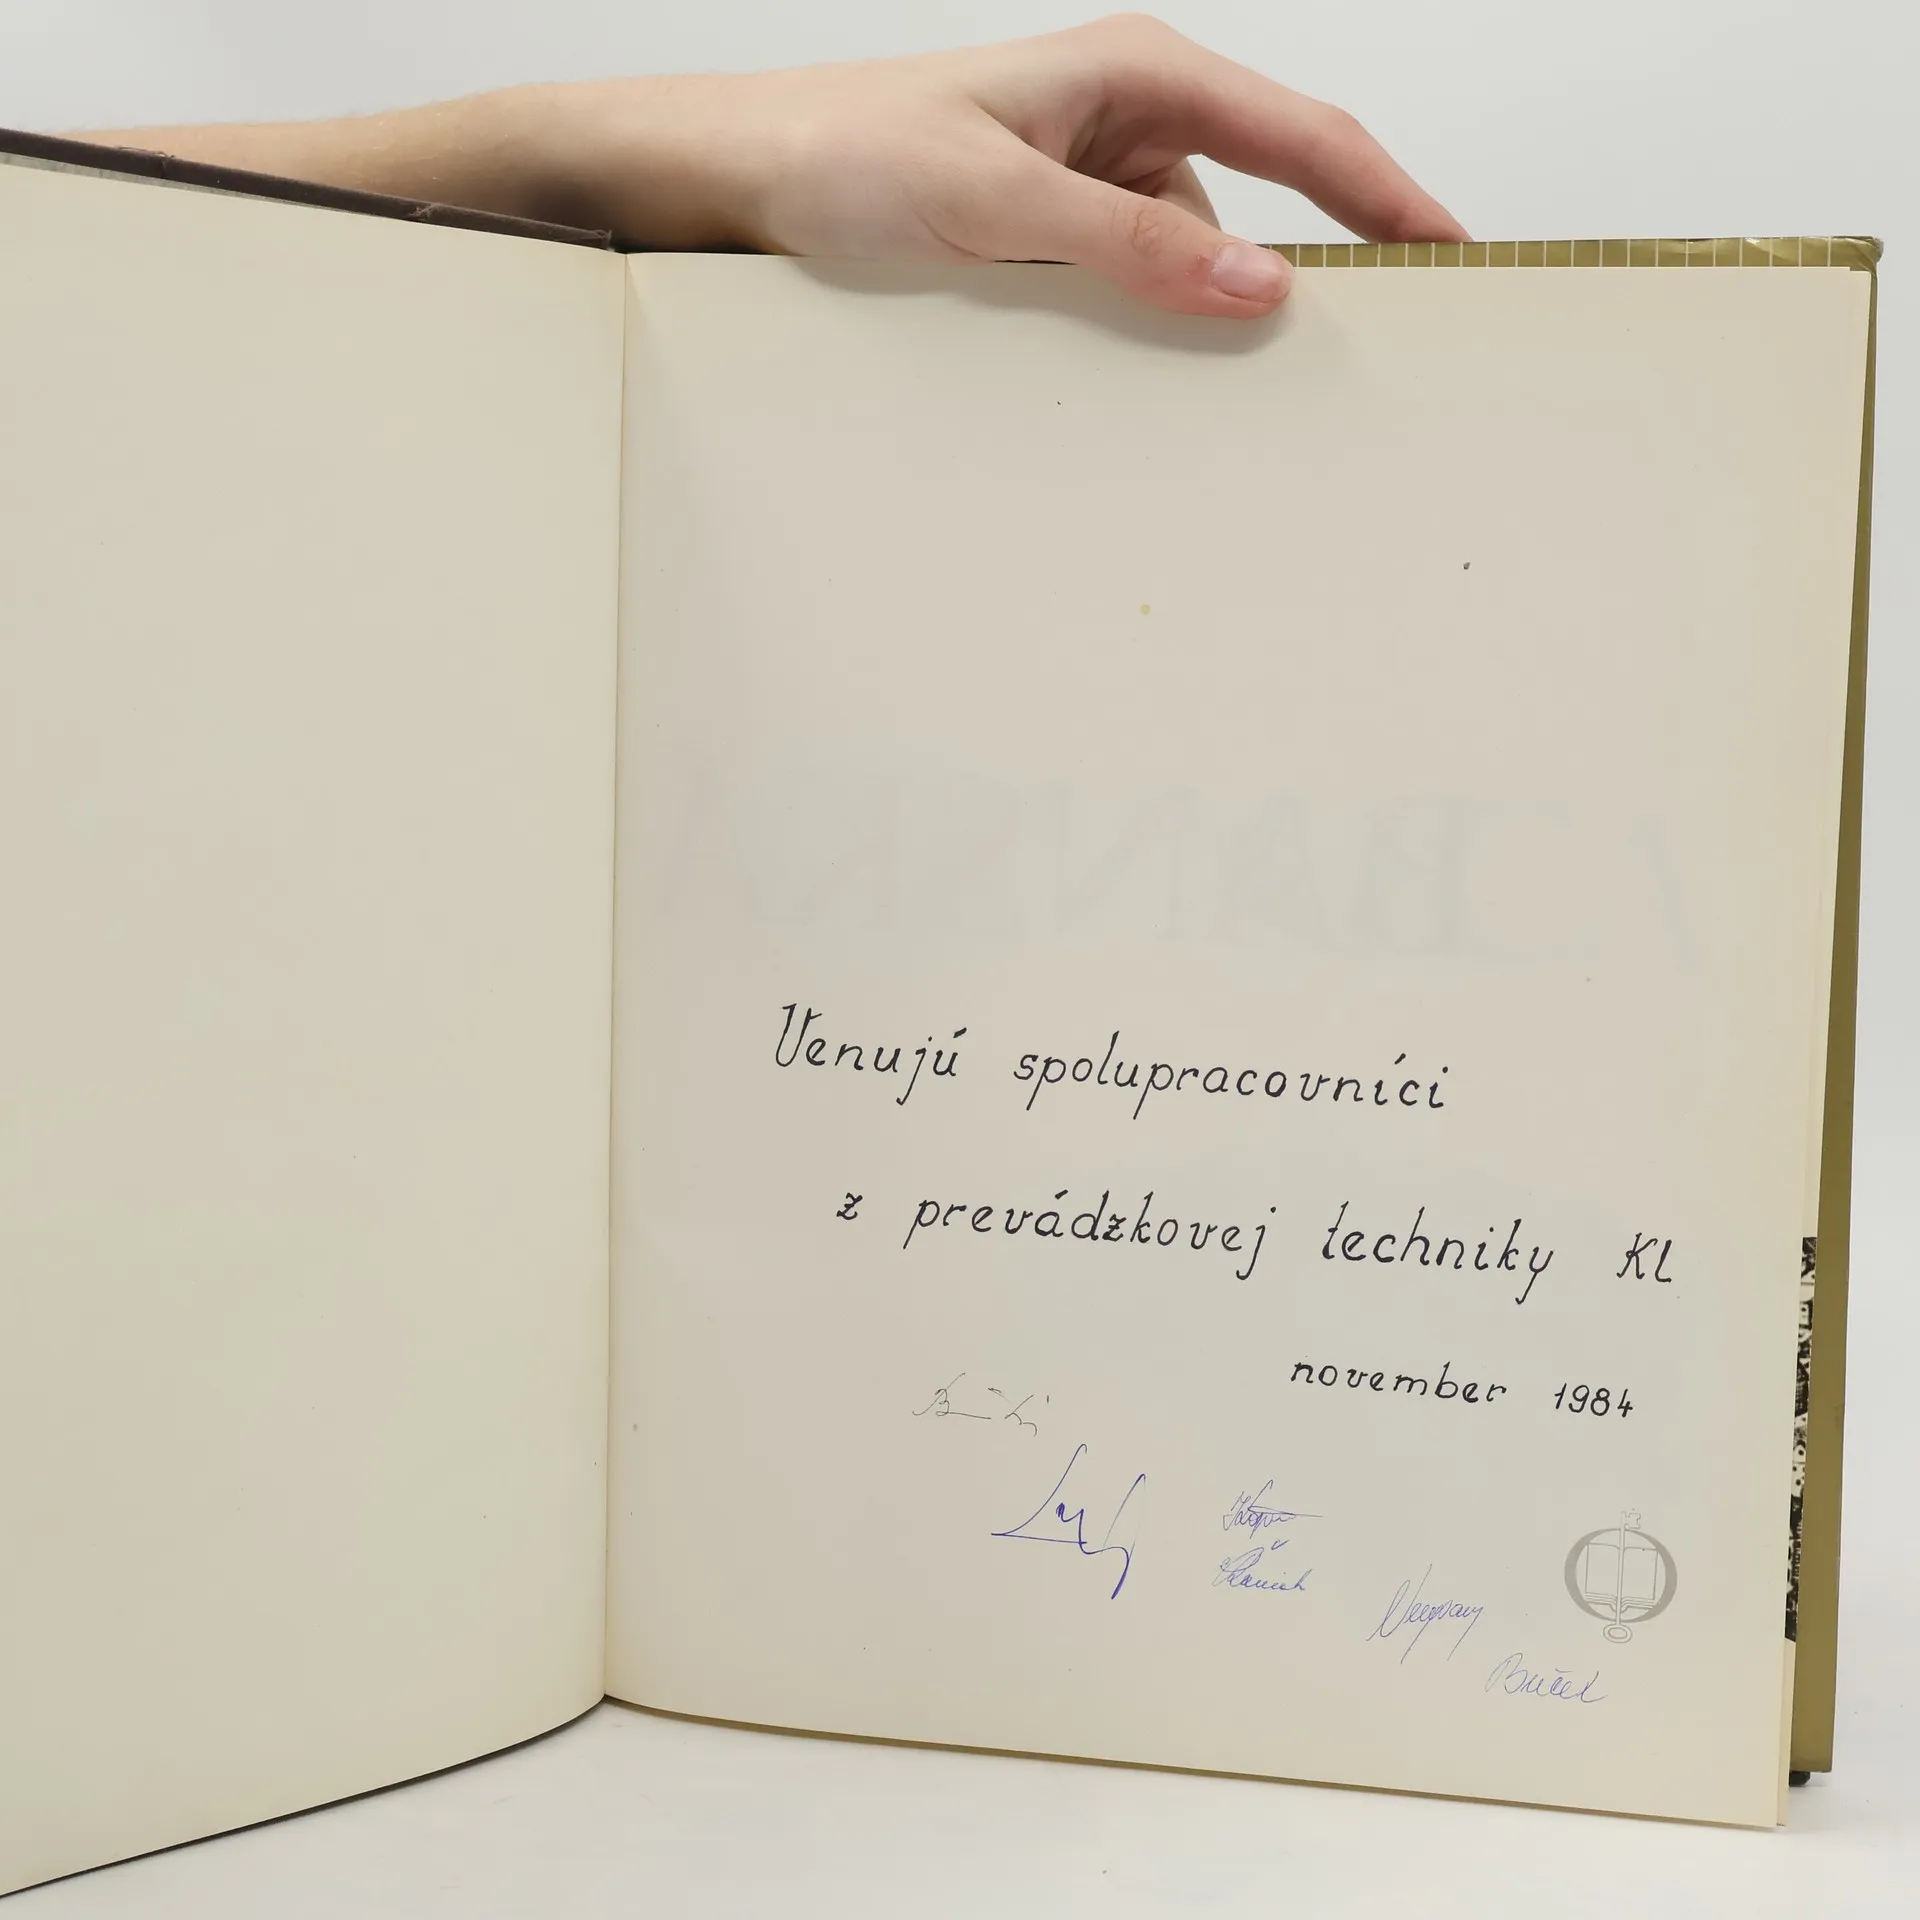 Venujú spolupracovníci
z prevádzkovej techniky Kl
november 1984
Buček